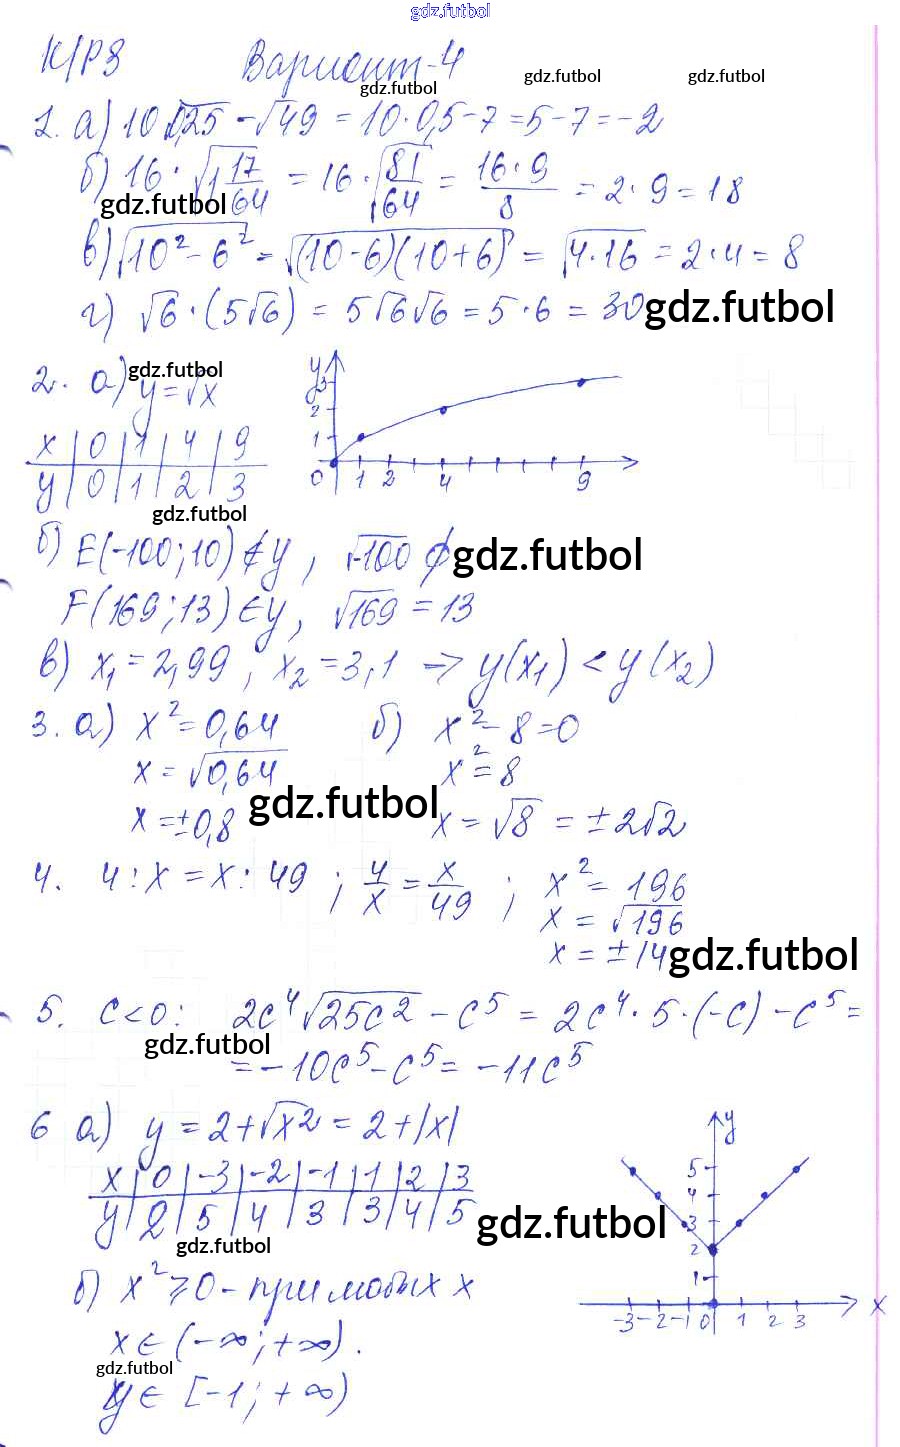 gdz.futbol
К/Р3 Вариант-4
gdz.futbol gdz.futbol gdz.futbol
1. а) 10√0,25 - √49 = 10·0,5-7 = 5-7 = -2
б) 16·√1 17/64 = 16·√81/64 = 16·9/8 = 2·9 = 18
gdz.futbol
в) √10²-6² = √(10-6)(10+6) = √4·16 = 2·4 = 8
г) √6·(5√6) = 5√6√6 = 5·6 = 30 gdz.futbol
2. а) y=√x gdz.futbol
y 3 2 1 0 1 2 4 9
x | 0 | 1 | 4 | 9
y | 0 | 1 | 2 | 3
gdz.futbol
б) E(-100;10) ∉ y, √-100 ∅ gdz.futbol
F(169;13) ∈ y, √169 = 13
в) x₁ = 2,99, x₂ = 3,1 → y(x₁) < y(x₂)
3. а) x² = 0,64 б) x² - 8 = 0
x = √0,64 x² = 8
x = ±0,8 gdz.futbol x = √8 = ±2√2
4. 4:x = x:49 ; 4/x = x/49 ; x² = 196
x = √196
x = ±14 gdz.futbol
5. c<0: 2c⁴√25c² - c⁵ = 2c⁴·5·(-c) - c⁵ =
gdz.futbol
= -10c⁵ - c⁵ = -11c⁵
6 а) y = 2+√x² = 2+|x|
x | 0 | -3 | -2 | -1 | 1 | 2 | 3
y | 2 | 5 | 4 | 3 | 3 | 4 | 5
gdz.futbol
gdz.futbol
y 5 4 3 2 1
-3 -2 -1 0 1 2 3 x
б) x² ≥ 0 - при любых x
x ∈ (-∞; +∞).
gdz.futbol
y ∈ [-1; +∞)